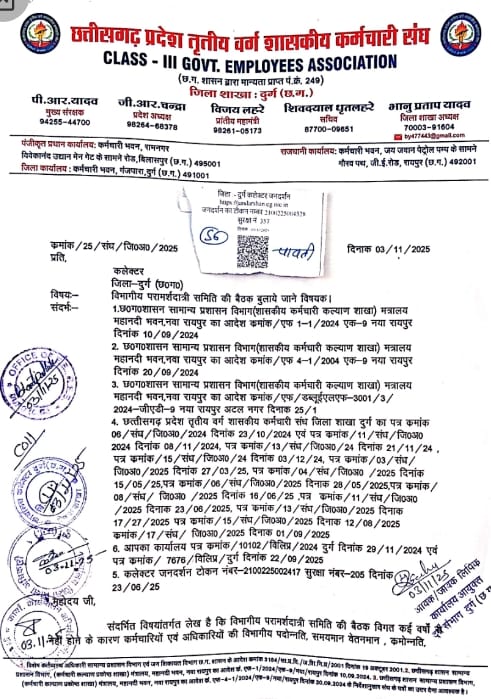 छत्तीसगढ़ प्रदेश तृतीय वर्ग शासकीय कर्मचारी संघ
CLASS - III GOVT. EMPLOYEES ASSOCIATION
(छ.ग. शासन द्वारा मान्यता प्राप्त पं.क्रं. 249)
जिला शाखा : दुर्ग (छ.ग.)
पी.आर.यादव
मुख्य संरक्षक
94255-44700
जी.आर.चन्द्रा
प्रदेश अध्यक्ष
98264-68378
विजय लहरे
प्रांतीय महामंत्री
98261-05173
शिवदयाल धृतलहरे
सचिव
87700-09651
भानु प्रताप यादव
जिला शाखा अध्यक्ष
70003-91604
by477443@gmail.com
पंजीकृत प्रधान कार्यालय: कर्मचारी भवन, रामनगर
विवेकानंद उद्यान मेन गेट के सामने रोड,बिलासपुर (छ.ग.) 495001
जिला कार्यालय : कर्मचारी भवन, गंजपारा,दुर्ग (छ.ग.) 491001
राजधानी कार्यालय: कर्मचारी भवन, जय जवान पेट्रोल पम्प के सामने
गौरव पथ, जी.ई.रोड, रायपुर (छ.ग.) 492001
जिला - दुर्ग कलेक्टर जनदर्शन
https://jandarshan.cg.nic.in
जनदर्शन का टोकन नम्बर
सुरक्षा नं 357
56
पावती
कमांक/25/संघ/जि0अ0/2025
दिनाक 03/11/2025
प्रति,
कलेक्टर
जिला-दुर्ग (छ0ग0)
विषय:- विभागीय परामर्शदात्री समिति की बैठक बुलाये जाने विषयक।
संदर्भ:- 1.छ0ग0शासन सामान्य प्रशासन विभाग(शासकीय कर्मचारी कल्याण शाखा) मत्रालय
महानदी भवन,नवा रायपुर का आदेश कमांक/एफ 1-1/2024 एक-9 नया रायपुर
दिनांक 10/09/2024
2. छ0ग0शासन सामान्य प्रशासन विभाग(शासकीय कर्मचारी कल्याण शाखा) मत्रालय
महानदी भवन,नवा रायपुर का आदेश कमांक/एफ 4-1/2004 एक-9 नया रायपुर
दिनांक 20/09/2024
3. छ0ग0शासन सामान्य प्रशासन विभाग(शासकीय कर्मचारी कल्याण शाखा) मत्रालय
महानदी भवन,नवा रायपुर का आदेश कमांक/एफ /डब्लूईएलएफ-3001/3/
2024-जीएडी-9 नया रायपुर अटल नगर दिनाक 25/1
4. छत्तीसगढ़ प्रदेश तृतीय वर्ग शासकीय कर्मचारी संघ जिला शाखा दुर्ग का पत्र कमांक
06/संघ/जि0अ0/2024 दिनांक 23/10/2024 एवं पत्र कमांक/11/संघ/जि0अ0
2024 दिनांक 08/11/2024, पत्र कमांक/13/संघ/जि0अ0/24 दिनांक 21/11/24,
पत्र कमांक/15/संघ/24 दिनांक 03/12/24, पत्र कमांक/03/संघ/
जि0अ0/2025 दिनांक 27/03/25, पत्र कमांक/04/संघ/जि0अ0 /2025 दिनांक
15/05/25,पत्र कमांक/06/संघ/जि0अ0/2025 दिनांक 28/05/2025,पत्र कमांक/
08/संघ/जि0अ0 /2025 दिनांक 16/06/25 ,पत्र कमांक/11/संघ/जि0अ0
/2025 दिनांक 23/06/2025, पत्र कमांक/13/संघ/जि0अ0/2025 दिनांक
17/27/2025 पत्र कमांक/15/संघ/जि0अ0/2025 दिनांक 12/08/2025
कमांक/17/संघ/जि0अ0/2025 दिनांक 01/09/2025
6. आपका कार्यालय पत्र कमांक/10102/विलिप्र/2024 दुर्ग दिनांक 29/11/2024 एवं
पत्र कमांक/ 7676/विलिप्र/दुर्ग दिनांक 22/09/2025
5. कलेक्टर जनदर्शन टोकन नंबर-2100225002417 सुरक्षा नंबर-205 दिनांक
23/06/25
महोदय जी,
संदर्भित विषयांतर्गत लेख है कि विभागीय परामर्शदात्री समिति की बैठक विगत कई वर्षों से
नही होने के कारण कर्मचारियों एवं अधिकारियों की विभागीय पदोन्नति, समयमान वेतनमान , कमोन्नति,
OFFICE OF
03/11/25
Coll
03-11-25
03.11
03/11/25
आवक/जावक लिपिक
कार्यालय आयुक्त
दुर्ग संभाग, दुर्ग (छ.ग.)